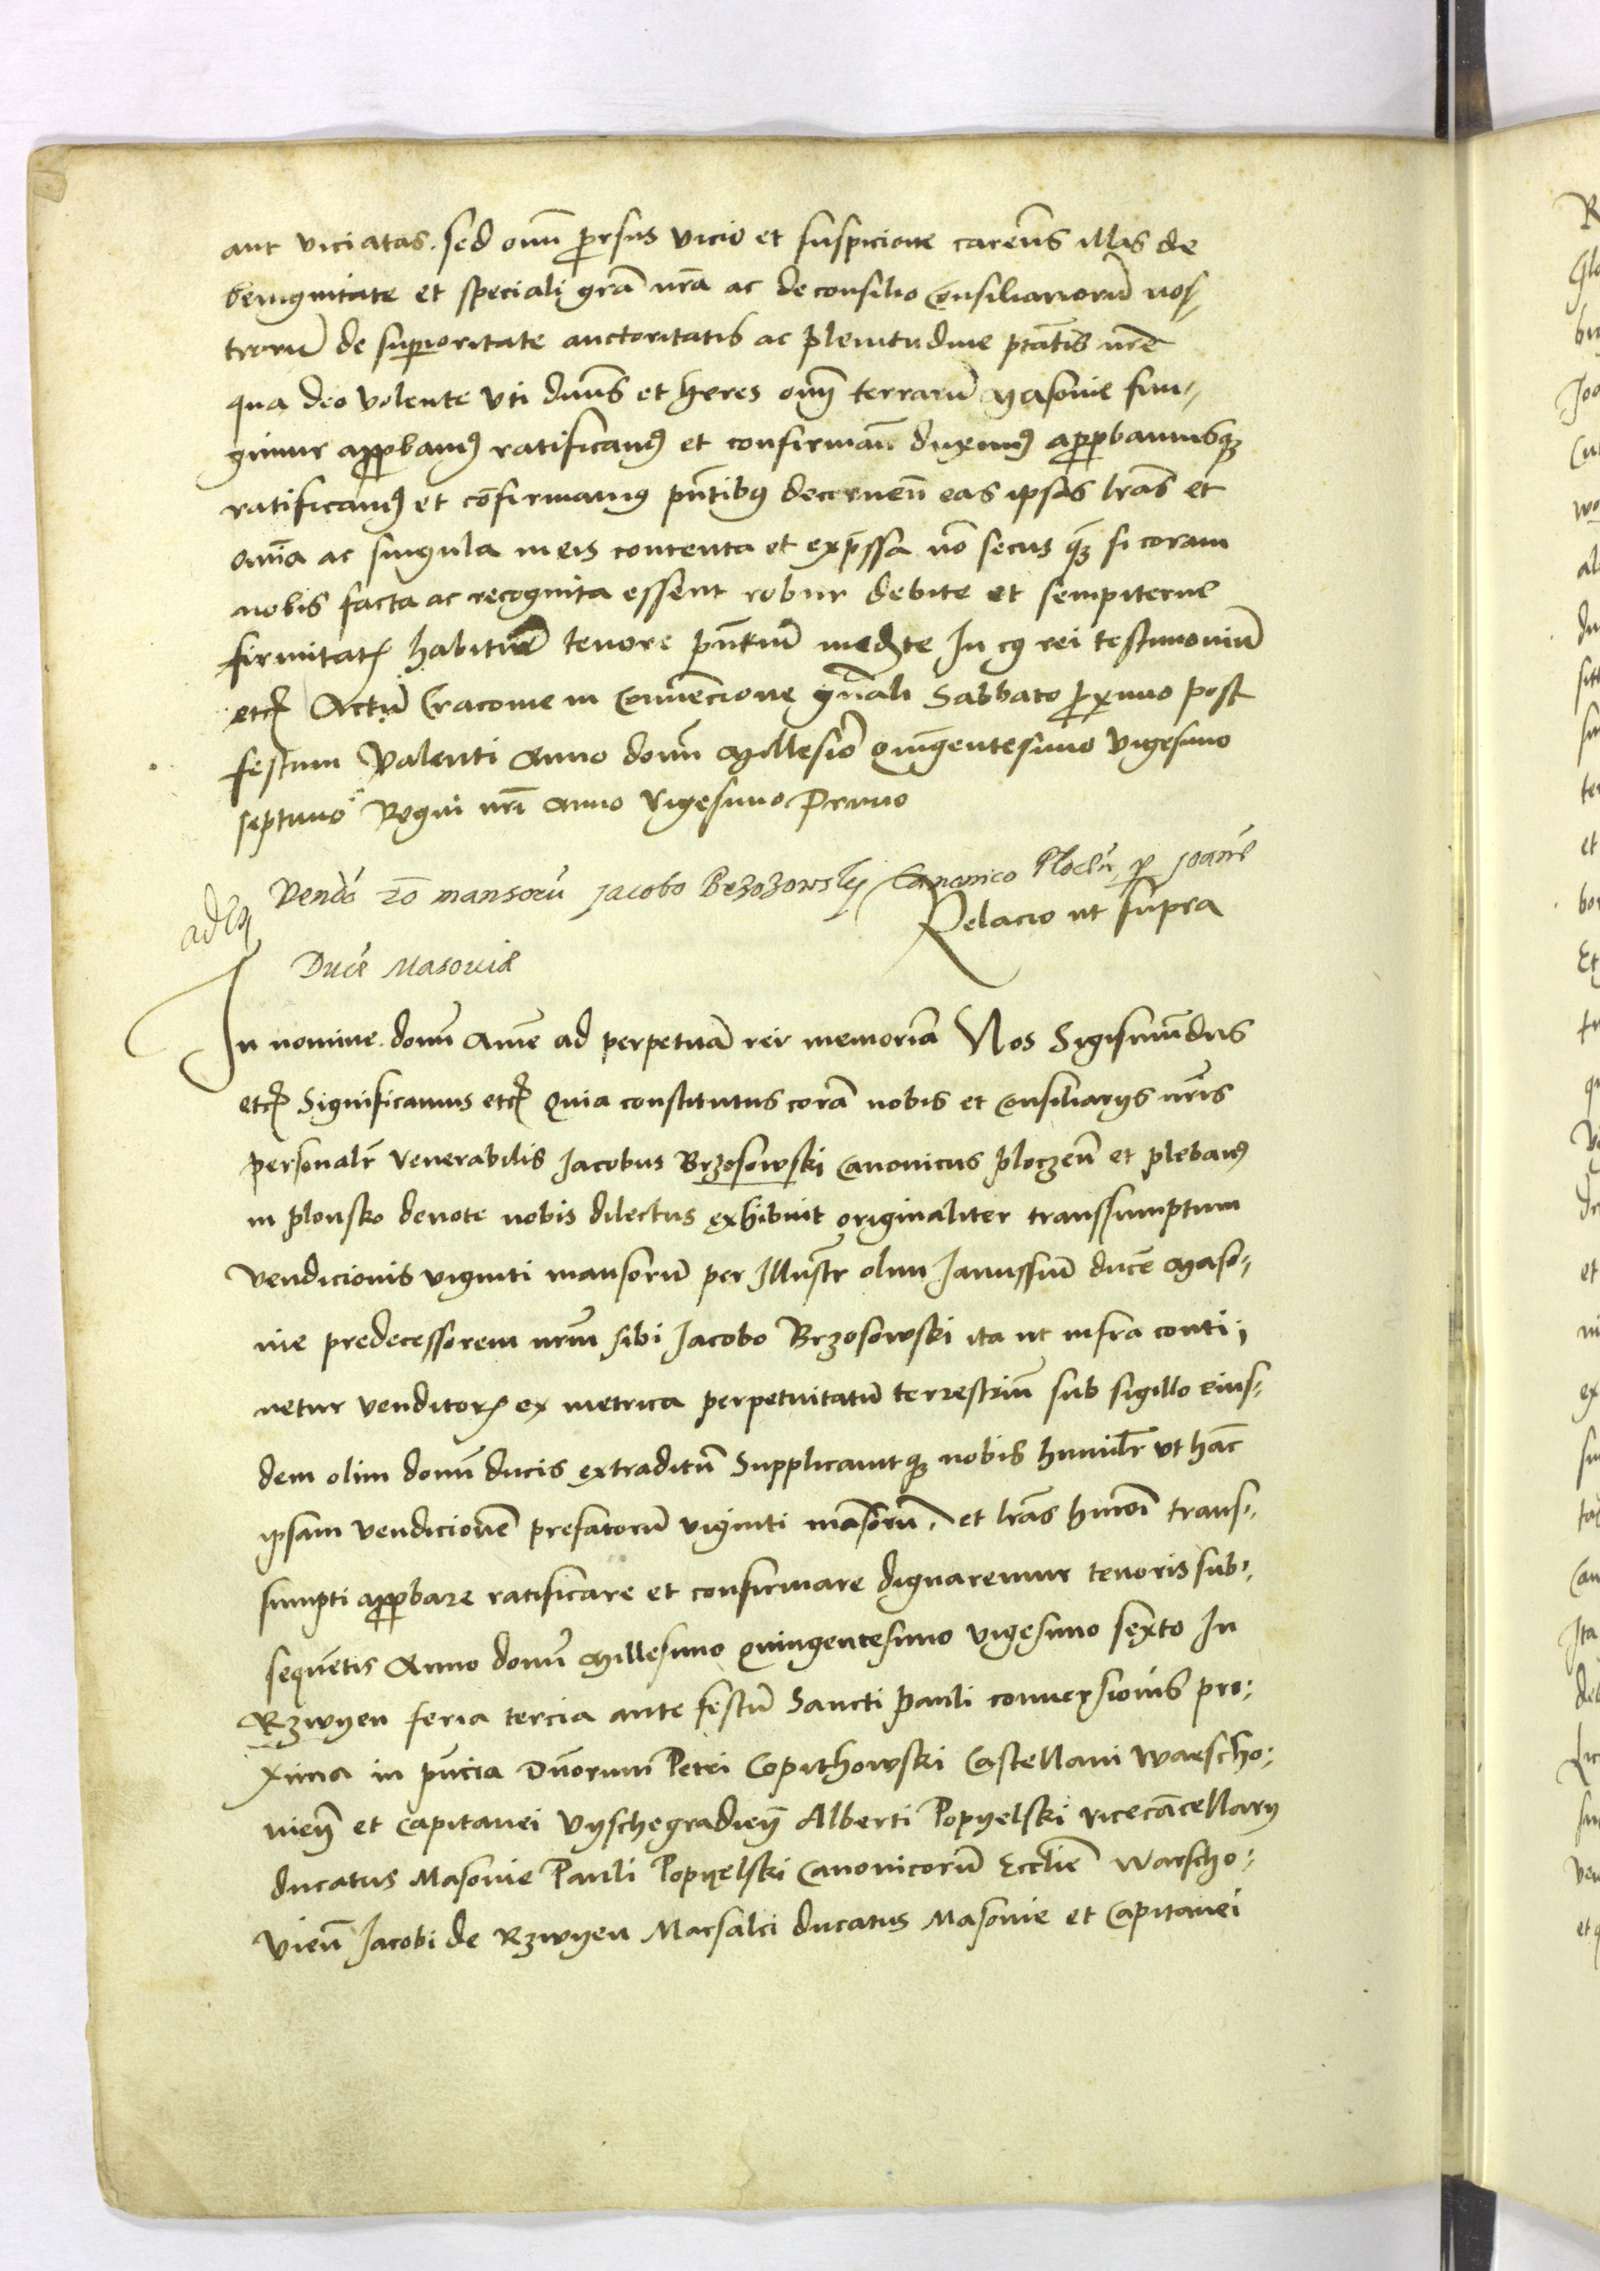 aut viciatas. sed om̄i prorsus vicio et suspicione careñs illas de
benignitate et speciali grã nrã ac de consilio Consiliariorũ nos-
trorũ de superioritate auctoritatis ac plenitudine ptãtis nrẽ
qua deo volente vti dnũs et heres om̄ terrarũ Masovie fun-
gimur approbandꝯ ratificandꝯ et confirmañ duximꝯ approbamusqꝫ
ratificamꝯ et cõfirmamus pñtibꝯ decerneñ eas ipsas lrãs et
om̄ia ac singula in eis contenta et exprẽssa nõ secus qꝫ si coram
nobis facta ac recognita essent robur debite et sempiterne
firmitatꝭ habiture tenore pñtiũ medꝫte In cꝯ rei testimoniũ
etcꝭ Actũ Cracovie in Convencione gñali Sabbato proximo post
festum Valenti Anno domĩ Millesiõ Quingentesimo vigesimo
septimo Regni nrĩ anno vigesimo Primo
Vendõ 20 mansorũ Jacobo Brzozowsky Canonico Plocẽn per Joanẽ
Relacio ut supra
Ducẽ Masoviæ
In nomine domĩ Amẽ ad perpetuã rei memoriã Nos Sigismũdus
etcꝭ Significamus etcꝭ Quia constitutus corã nobis et Consiliarijs nrĩs
personalr̃ Venerabilis Jacobus Brzosowski Canonicus ploczeñ et plebanꝯ
in plonsko devote nobis dilectus exhibuit originaliter transsumptum
vendicionis viginti mansorũ per Illustr̃ olim Janussiũ ducẽ Maso-
vie predecessorem nrũm sibi Jacobo Brzosowski ita ut infra conti-
netur venditorꝭ ex metrica perpetuitatũ terrestriũ sub sigillo eius-
dem olim domĩ ducis extraditũ Supplicavitqꝫ nobis humilr̃ vt hãc
ipsam vendicionẽ prefatorũ viginti mãsorũ. et lrãs hmõi trans-
sumpti approbare ratificare et confirmare dignaremur tenoris sub-
sequẽtis Anno domĩ Millesimo Quingentesimo vigesimo sexto In
Rzwyen feria tercia ante festũ Sancti Pauli conversionis pro-
xima in pñcia Dñorum Petri Copithowski Castellani Warscho-
vieñ et Capitanei Vyschegradieñ Alberti Popyelski vicecãcellarij
ducatus Masovie Pauli Popyelski Canonicorũ Ecclie Warscho-
vieñ Jacobi de Rzwyen Marsalci ducatus Masovie et Capitanei